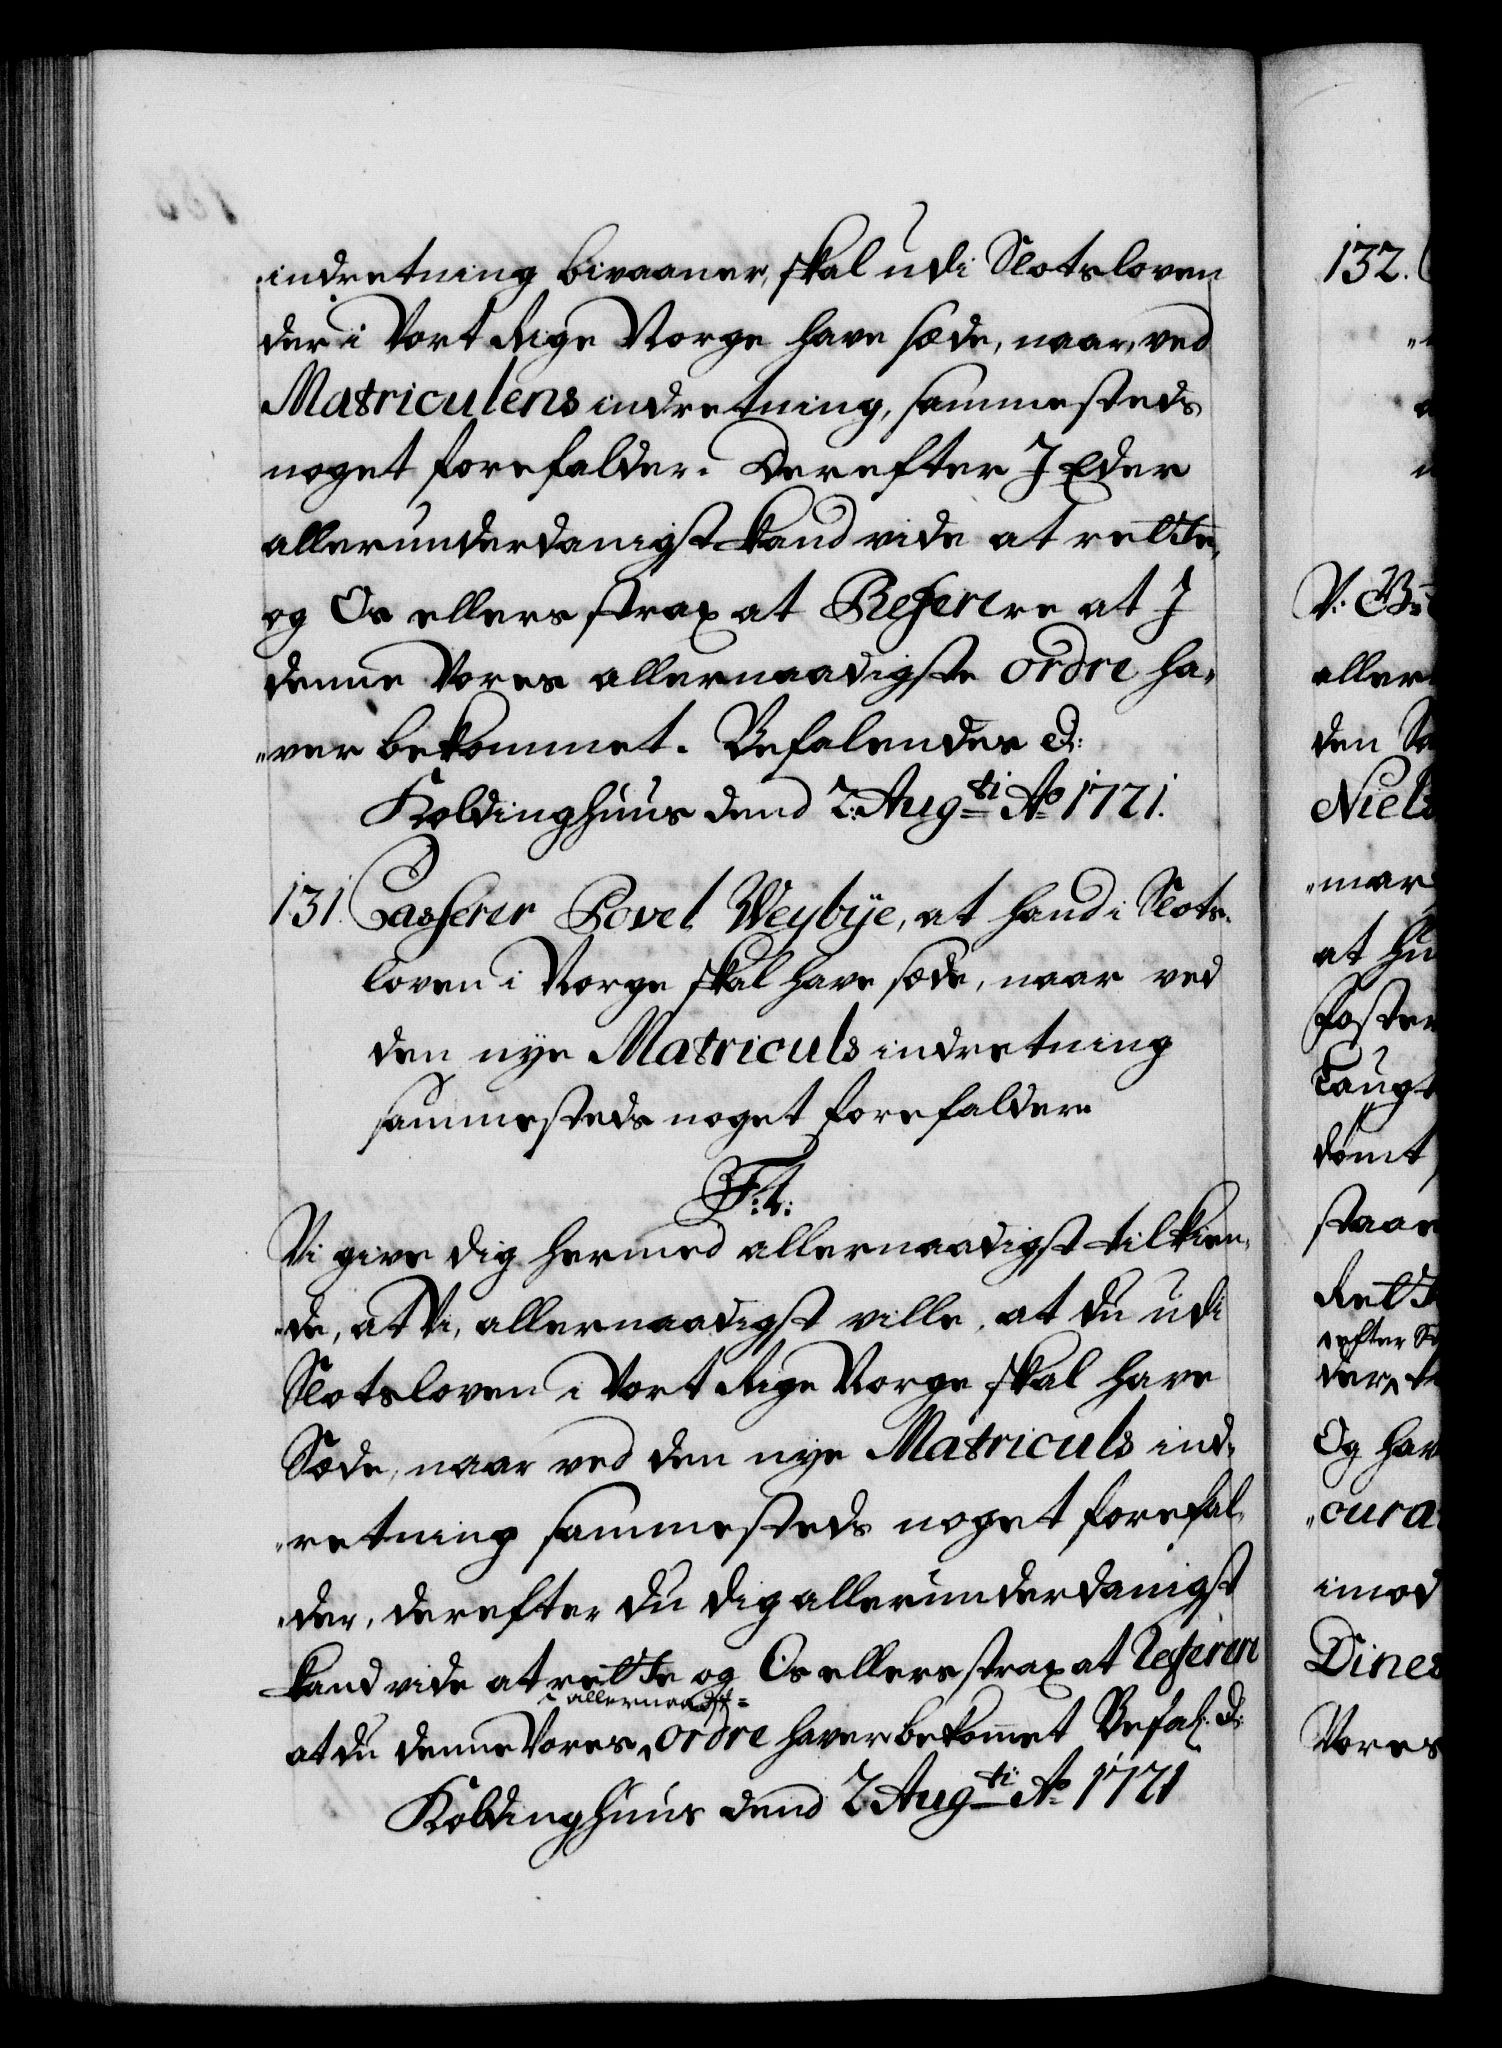 indretning bivaaner, skal udi Slotsloven
der i Vort Rige Norge have sæde, naar, ved
Matriculens indretning, sammesteds
noget forefalder. Derefter I Eder
allerunderdanigst kand vide at rette,
og Os ellers strax at Referere at I
denne Vores allernaadigste ordre ha,
„ver bekommet. Befalendes d:
Koldinghuus dend 2. Aug:ti Ao 1721.
131. Casserer Povel Weybÿe, at hand i Slots,
loven i Norge skal have sæde, naar ved
den nye Matriculs indretning
sammesteds noget forefalder
F:t:
Vi give dig hermed allernaadigst tilkien,
„de, at Vi, allernaadigst ville, at du udi
Slotsloven i Vort Rige Norge skal have
Sæde, naar ved den nye Matriculs ind,
„retning sammesteds noget forefal,
„der, derefter du dig allerunderdanigst
kand vide at rette og Os ellers strax at Referere
allernaadst
at du denne Vores ordre haver bekomet Befal: d:
Koldinghuus dend 2 Aug:ti Ao 1721
132.
aller
den
Niels
„mar
at
foster
dømt
staae
Rette
efter
Og hav
„cura
imod
Dines
Vores